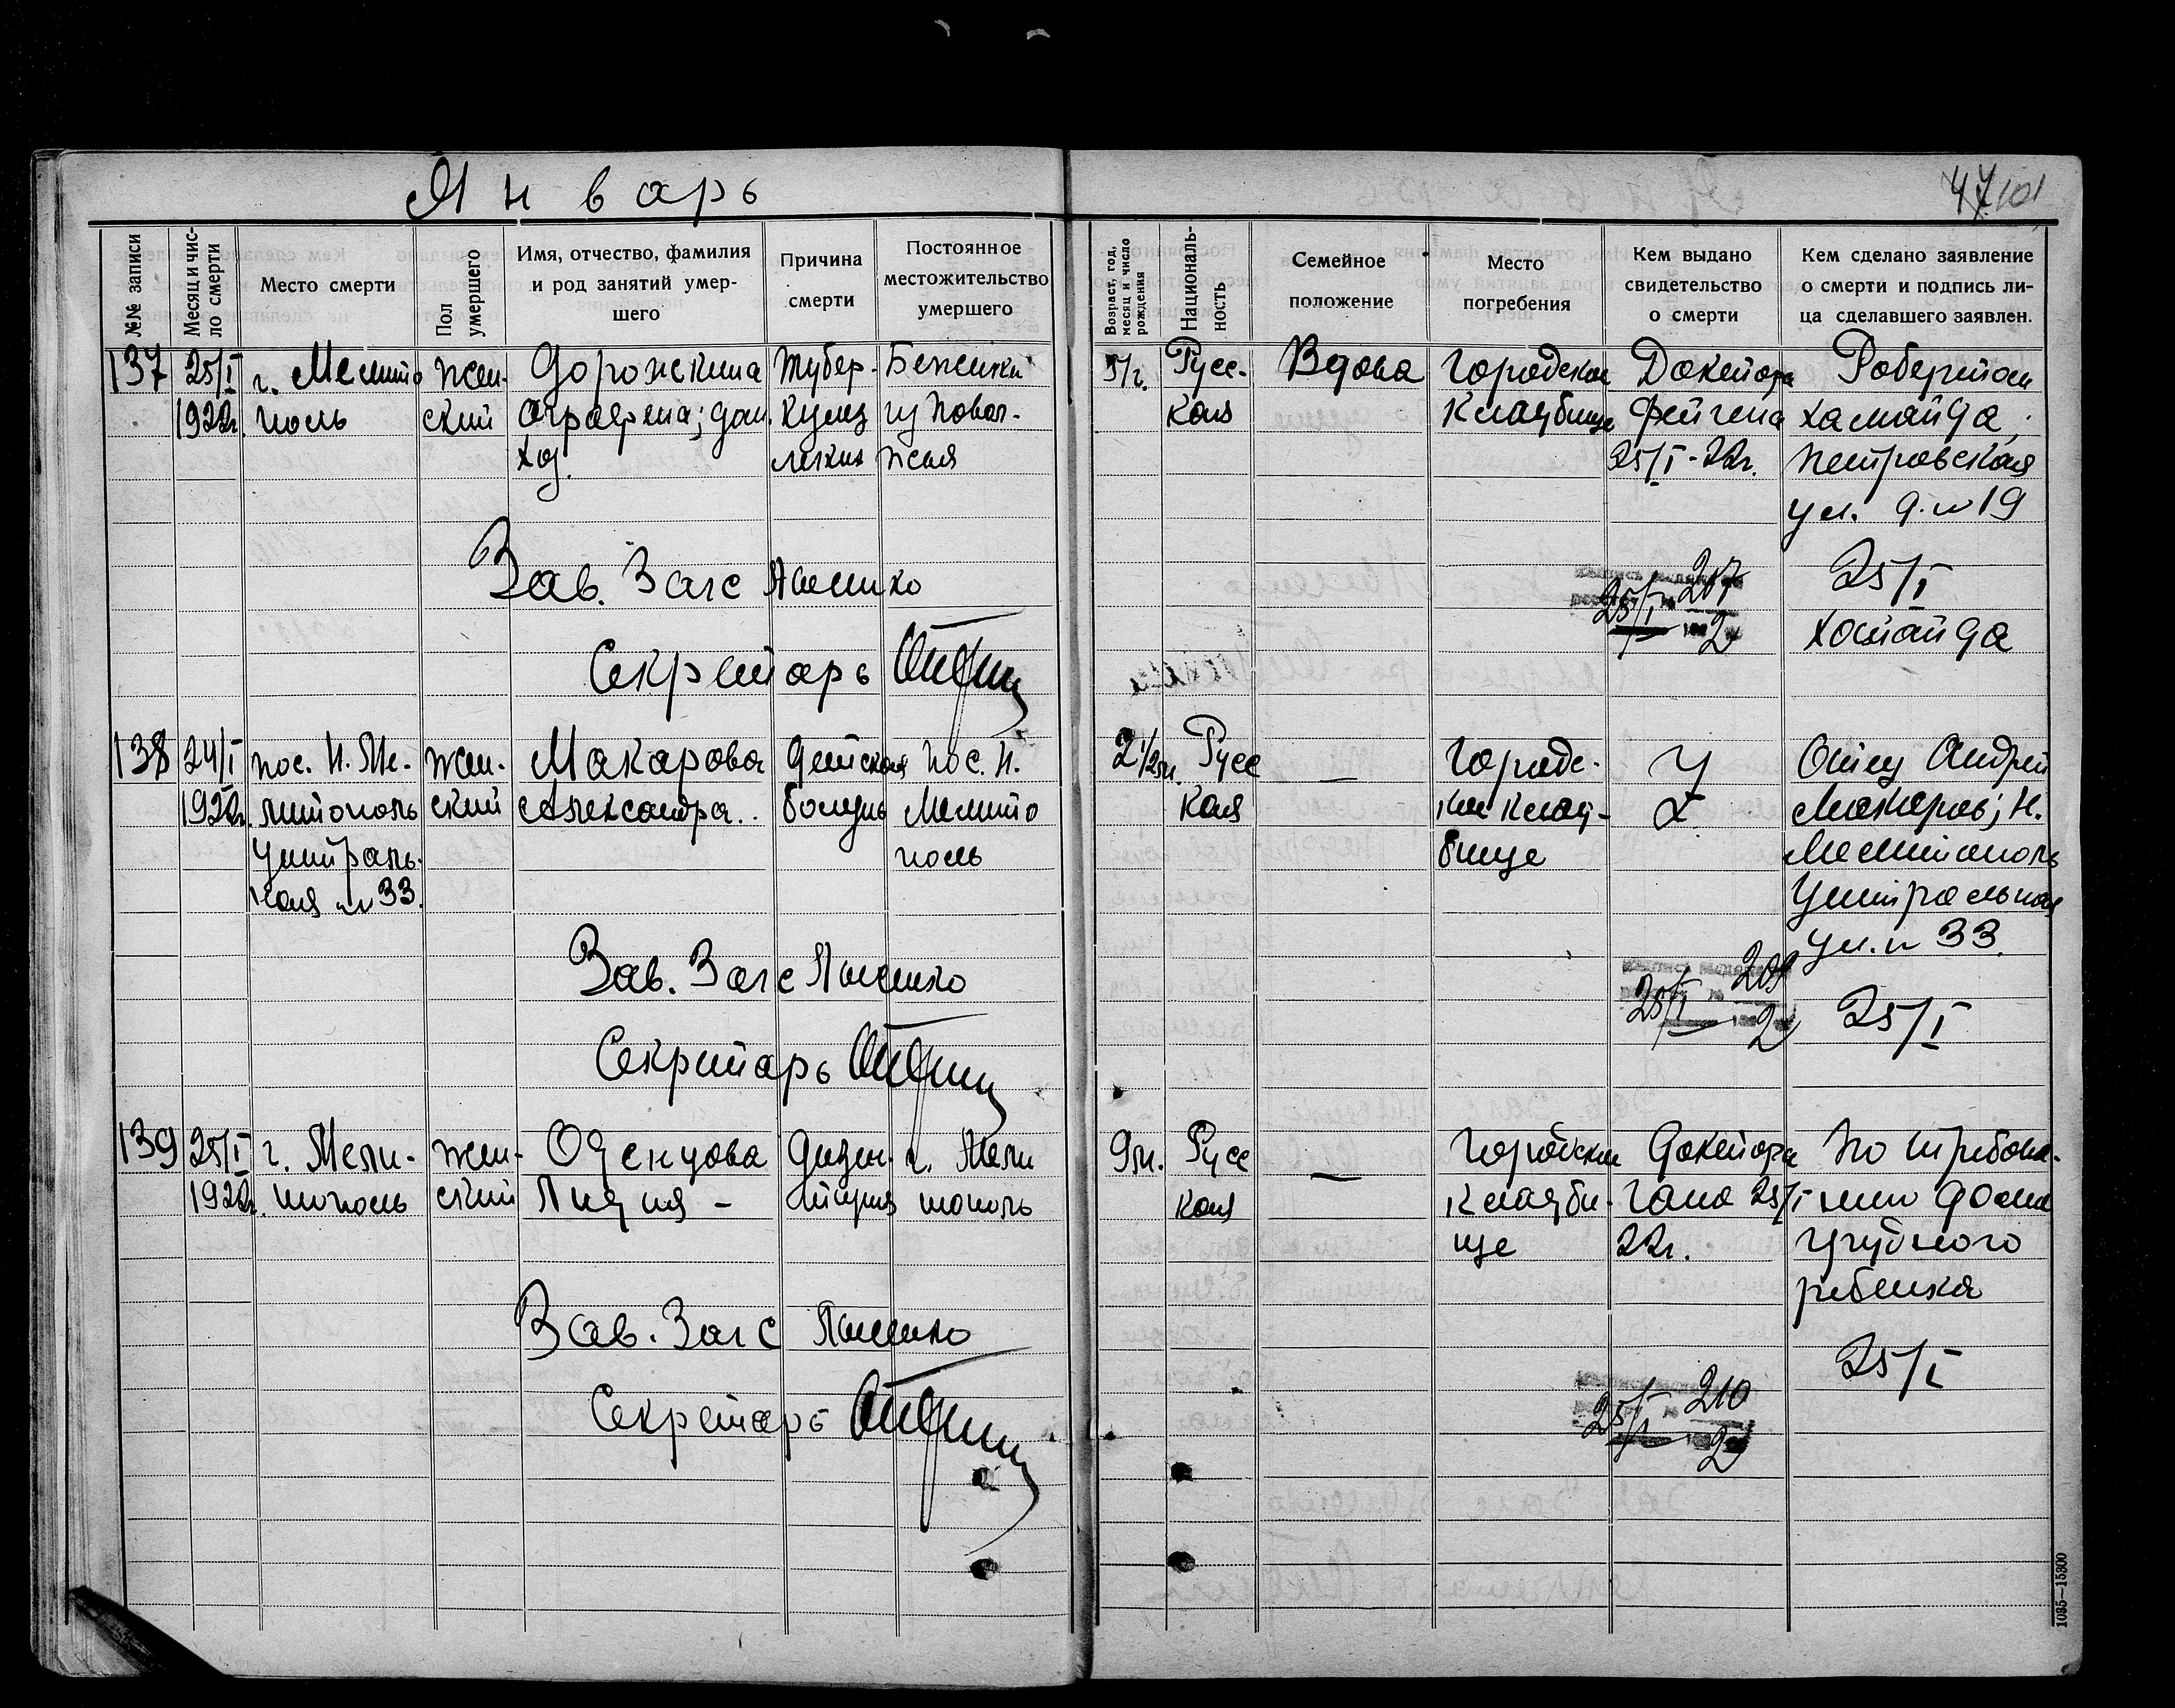 Январь
47 101
№№ записи
Месяц и чис-
ло смерти
Место смерти
Пол
умершего
Имя, отчество, фамилия
и род занятий умер-
шего
Причина
смерти
Постоянное
местожительство
умершего
Возраст, год,
месяц и число
рождения
Националь-
ность
Семейное
положение
Место
погребения
Кем выдано
свидетельство
о смерти
Кем сделано заявление
о смерти и подпись ли-
ца сделавшего заявлен.
137
25/I
1922г.
г. Мелито
поль
жен-
ский
Дорожкина
Аграфена; дом.
хоз.
Тубер-
кулез
легких
Беженка
из Повол-
жья
Русс-
кая
Вдова
Городское
кладбище
Доктора
Фейгена
25/I-22г.
хамайда
Петровская
ул. д. № 19
25/I 207
2
25/I
Зав. Загс
Секретарь
138
24/I
1922г.
пос. Н. Ме-
литополь
Централь-
ная № 33.
жен-
ский
Макарова
Александра.
детская
болезнь
пос. Н.
Мелито
поль
2 1/2 м.
Русс
кая
—
Городс-
кое клад-
бище
Отец Андрей
Макаров; Н.
Мелитополь
Центральная
ул. № 33.
25/I 209
2
25/I
Зав. Загс
Секретарь
139
25/I
1922г.
г. Мели-
тополь
жен-
ский
Оденцова
Лидия -
Дизен-
терия
г. Мели
тополь
9м.
Русс
кая
—
Городское
кладби-
ще
Доктора
Гана 25/I
22г.
По требова-
нию дома
грудного
ребенка
25/I
25/I 210
2
Зав. Загс
Секретарь
1035—15300